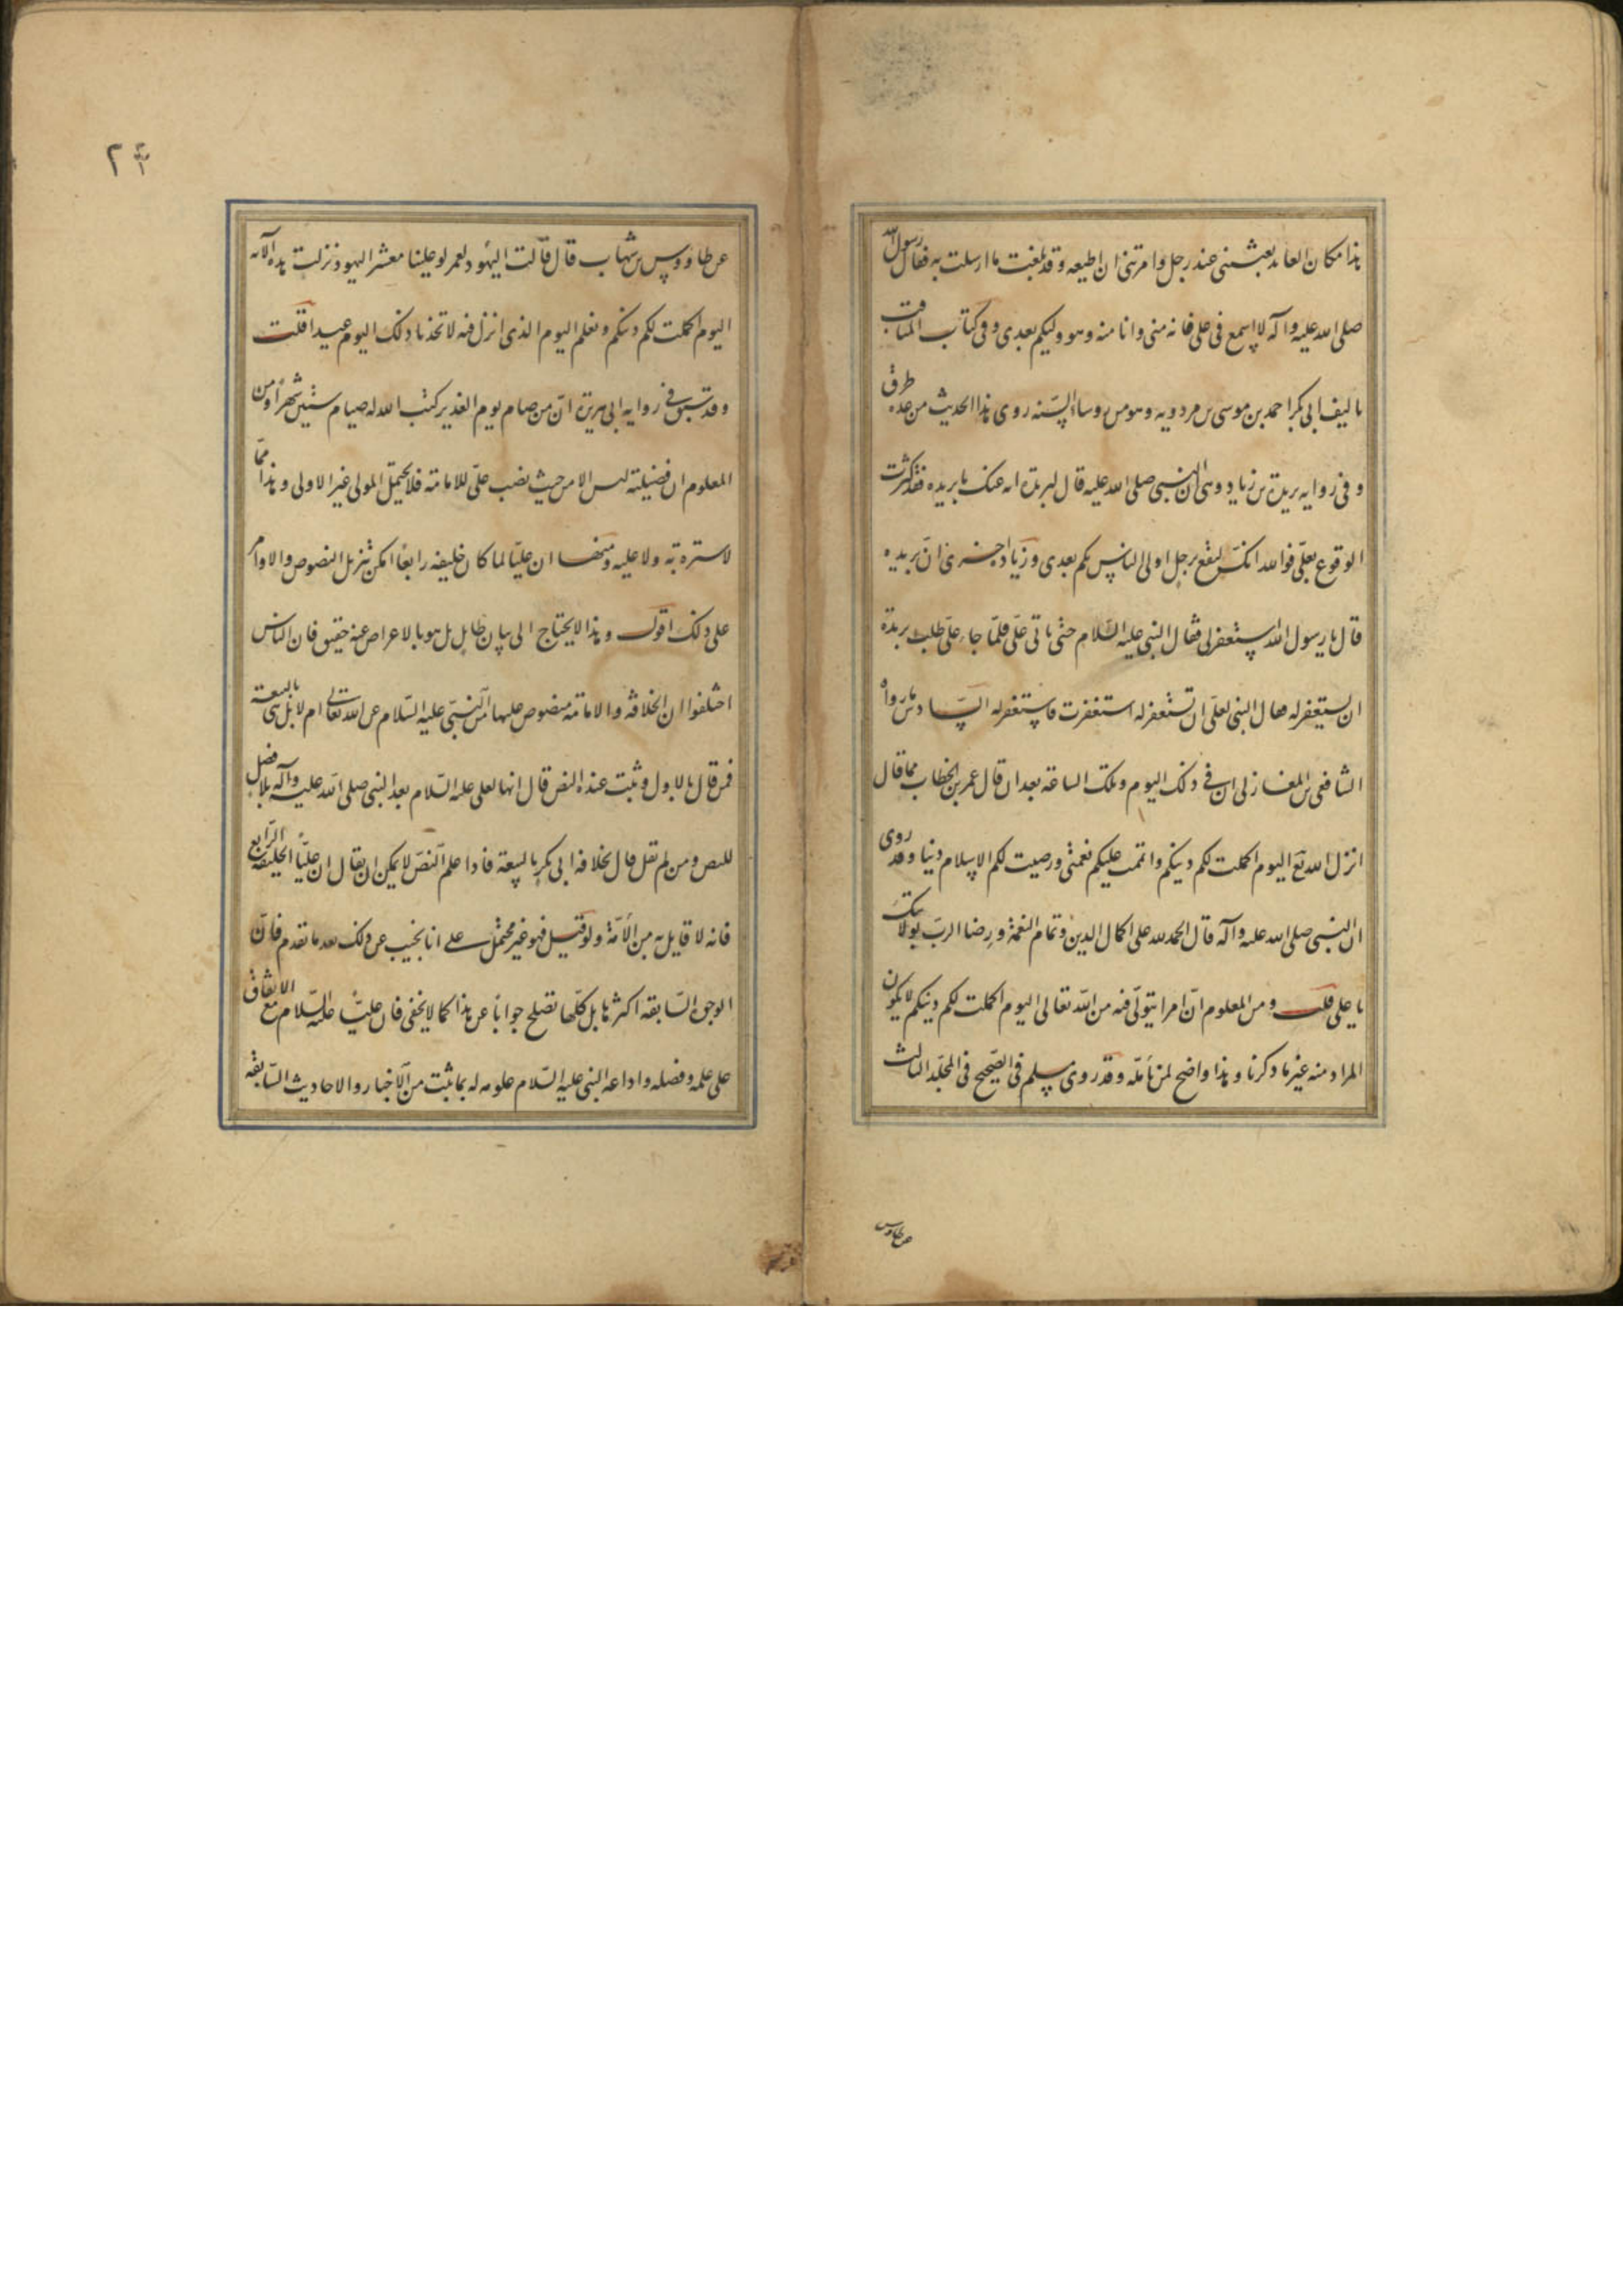 هذا مكان العايذ بعثتنى عند رجل وامرتنى ان اطيعه وقد بلغت ما ارسلت به فقال رسول الله
صلى الله عليه وآله لا اسمع فى على فانه منى وانا منه وهو وليكم بعدى وفى كتاب المناقب
تاليف ابى بكر احمد بن موسى بن مردويه وهو من روسا السنه روى هذا الحديث من عده طرق
وفى روايه بريدة بن زياد وهى ان النبى صلى الله عليه قال لبريدة ايه عنك يا بريده فقد اكثرت
الوقوع بعلى فوالله انك لتقع برجل اولى الناس بكم بعدى وزياد اخرى ان بريده
قال يا رسول الله استغفر لى فقال النبى عليه السلام حتى ياتى على فلما جاء على طلب بريدة
ان يستغفر له فقال النبى لعلى ان تستغفر له استغفرت فاستغفر له السادس ما رواه
الشافعى بن المغازلى ان فى ذلك اليوم وتلك الساعة بعد ان قال عمر بن الخطاب مما قال
انزل الله تع اليوم اكملت لكم دينكم واتممت عليكم نعمتى ورضيت لكم الاسلام دينا وقد روى
ان النبى صلى الله عليه وآله قال الحمد لله على اكمال الدين وتمام النعمة ورضا الرب بولايتك
يا على قلت ومن المعلوم ان امرا يتولى فيه من الله تعالى اليوم اكملت لكم دينكم لا يكون
المراد منه غير ما ذكرنا وهذا واضح لمن تأمله وقد روى مسلم فى الصحيح فى المجلد الثالث
عن طاوس
٢٤
عن طاووس بن شهاب قال قالت اليهود لعمر لو علينا معشر اليهود نزلت هذه الآيه
اليوم اكملت لكم دينكم ونعلم اليوم الذى انزل فيه لاتخذنا ذلك اليوم عيدا قلت
وقد سبق فى روايه ابى هريرة ان من صام يوم الغدير كتب الله له صيام ستين شهرا ومن
المعلوم ان فضيلته ليس الا من حيث نصب على للامامة فلا يحتمل المولى غير الاولى وهذا مما
لا سترة به ولا عليه ومنها ان عليا لما كان خليفه رابعا امكن تنزيل النصوص والاوامر
على ذلك اقول وهذا لا يحتاج الى بيان طايل بل هو بالاعراض عنه حقيق فان الناس
اختلفوا ان الخلافه والامامة منصوص عليها من النبى عليه السلام عن الله تعالى ام لا بل هى بالبيعة
فمن قال بالاول وثبت عنده النص قال انها لعلى عليه السلام بعد النبى صلى الله عليه وآله بلا فصل
للنص ومن لم يقل قال بخلافه ابى بكر بالبيعة فاذا علم النص لا يمكن ان يقال ان عليا الخليفة الرابع
فانه لا قايل به من الأمة ولو قيل فهو غير محتمل على انا نجيب عن ذلك بعد ما تقدم فان
الوجوه السابقه اكثرها بل كلها تصلح جوابا عن هذا كما لا يخفى فان عليا عليه السلام مع الاتفاق
على علمه وفضله واداعه النبى عليه السلام علومه له بما ثبت من الاخبار والاحاديث السابقه